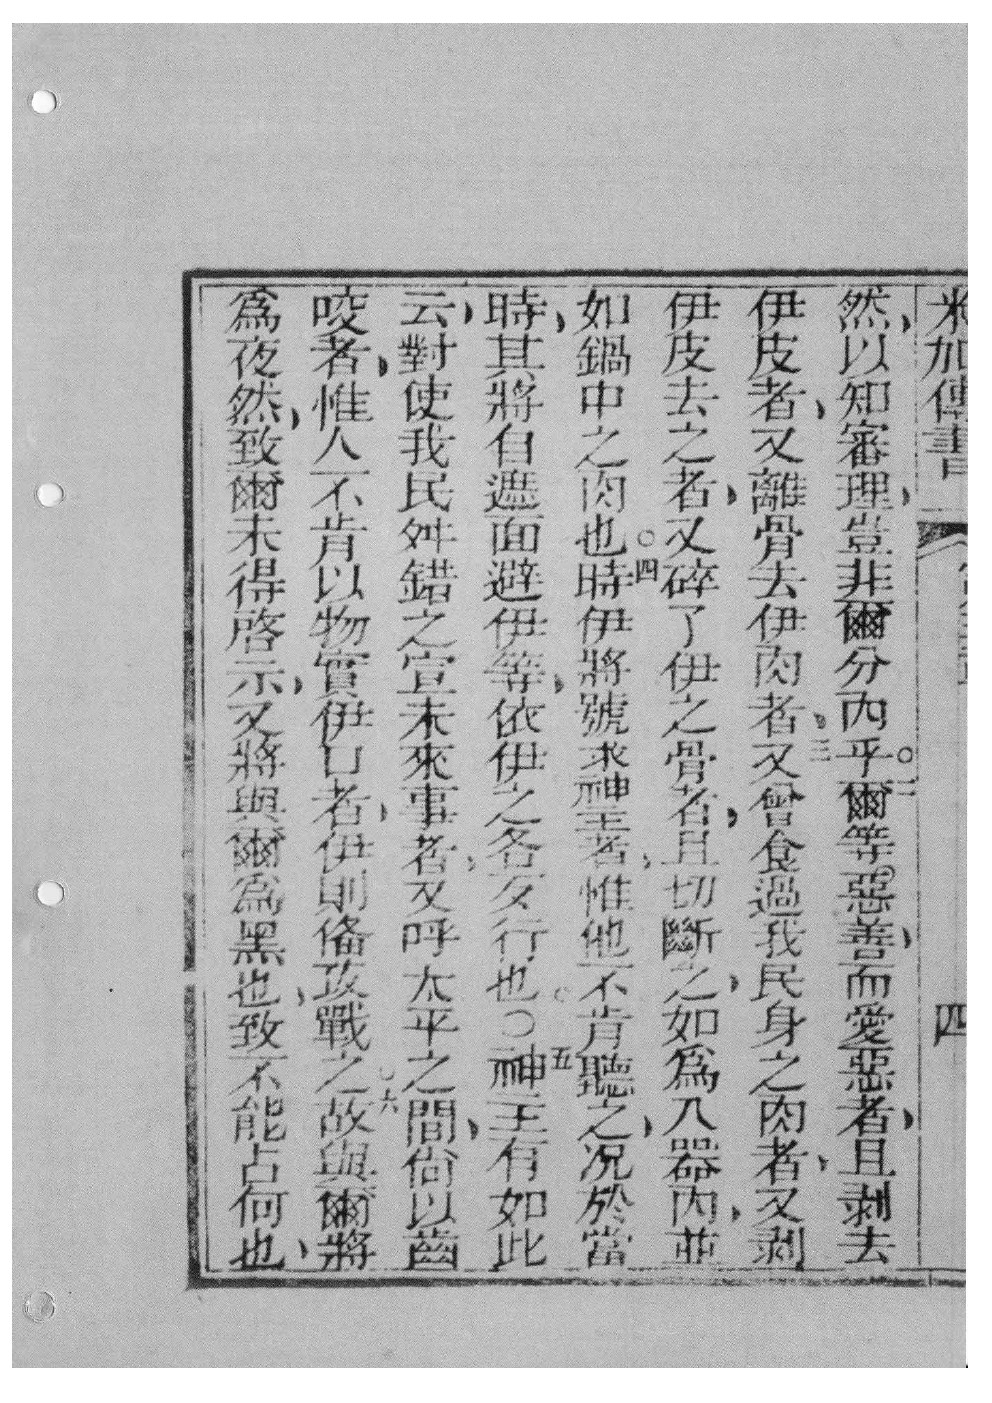 米加傳書 四
然、以知審理、豈非爾分內乎○二爾等惡善、而愛惡者、且剥去
伊皮者、又離骨去伊肉者、三又曾食過我民身之肉者、又剥
伊皮去之者、又碎了伊之骨者、且切斷之、如爲入器內、並
如鍋中之肉也○四時伊將號求神主者、惟他不肯聽之、况於當
時、其將自遮面避伊等、依伊之各歹行也。○五神主有如此
云、對使我民舛錯之宣未來事者、又呼太平之間、尙以齒
咬者、惟人不肯以物實伊口者、伊則俻攻戰之○六故與爾將
爲夜然、致爾未得啓示、又將與爾爲黑也、致不能占何也、